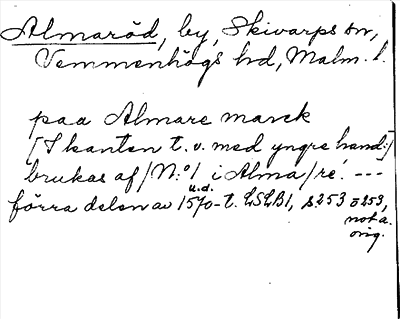 Almaröd, by, Skivarps sn,
Vemmenhögs hd, Malm. l.
paa Almare marck
[I kanten t. v. med yngre hand:]
brukas af/N:o 1 i Alma/re. ---
u.d.
förra delen av 1570-t. LSLB1, s. 253 o 253,
not a.
orig.